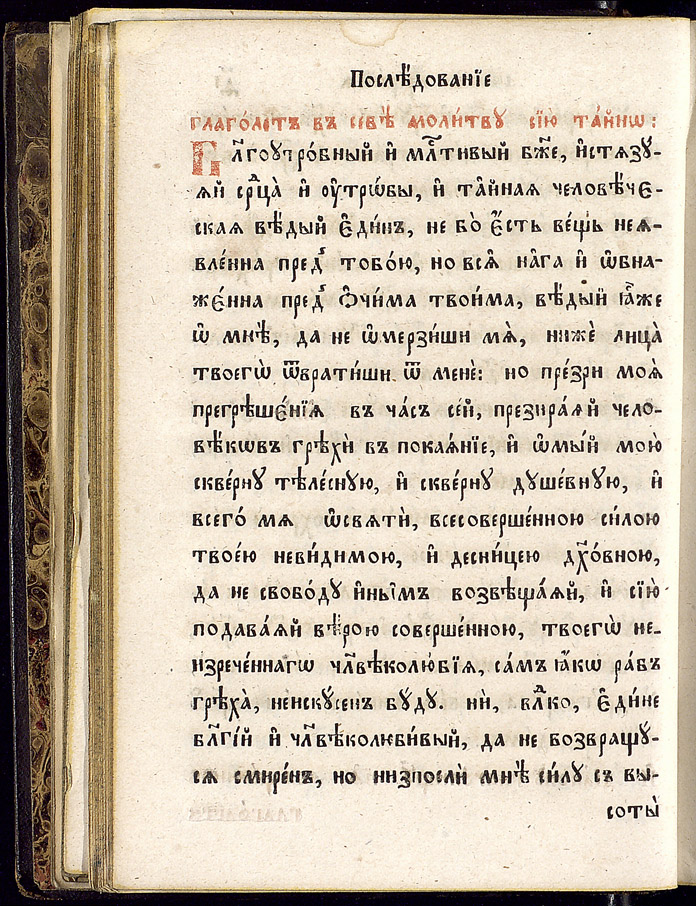 Послѣ́дованїе
глаго́летъ въ себѣ̀ моли́тву сїю̀ та́йнѡ:
Бл҃гоутро́бный и҆ мл҃тивый бж҃е, и҆стязу́-
яй ср҃ца̀ и҆ ѹ҆трѡ́бы, и҆ та̑йная человѣ́че-
ская вѣ́дый є҆ди́нъ, не бо̀ є҆́сть ве́щь неѧ-
вле́нна пред̾ тобо́ю, но всѧ̑ на̑га и҆ ѡ҆бна-
же́нна пред̾ ѻ҆чи́ма твои́ма, вѣ́дый ꙗ҆̀же
ѡ҆ мнѣ̀, да не ѡ҆мерзи́ши мѧ̀, нижѐ лица̀
твоегѡ̀ ѿврати́ши ѿ менѐ: но пре́зри моѧ̑
прегрѣше́нїѧ въ ча́съ се́й, презира́ѧй чело-
вѣ́кѡвъ грѣхѝ въ покаѧ́нїе, и҆ ѡ҆мы́й мою̀
скве́рну тѣле́сную, и҆ скве́рну душе́вную, и҆
всего́ мѧ ѡ҆свѧтѝ, всесоверше́нною си́лою
твое́ю неви́димою, и҆ десни́цею дх҃о́вною,
да не свобо́ду и҆ны̑мъ возвѣща́ѧй, и҆ сїю̀
подава́ѧй вѣ́рою соверше́нною, твоегѡ̀ не-
изрече́ннагѡ чл҃вѣколю́бїѧ, са́мъ ꙗ҆́кѡ ра́бъ
грѣха̀, неискꙋ́сенъ бꙋ́дꙋ. нѝ, вл҃ко, є҆ди́не
бл҃гі́й и҆ чл҃вѣколюби́вый, да не возвращꙋ́-
сѧ смире́нъ, но низпослѝ мнѣ̀ си́лꙋ съ вы-
соты̀